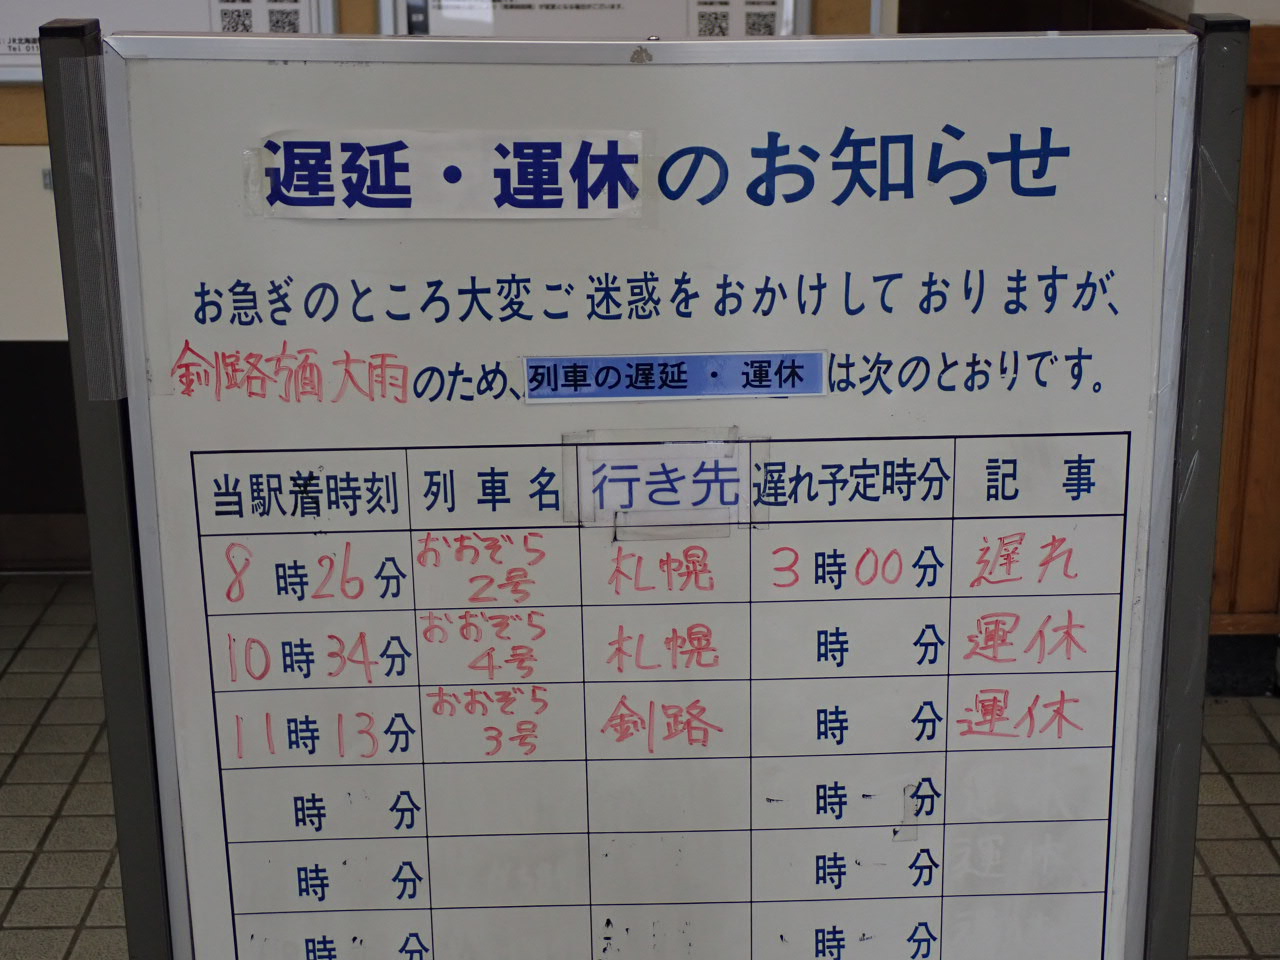 遅延・運休のお知らせ
お急ぎのところ大変ご迷惑をおかけしておりますが、
釧路方面大雨のため、列車の遅延・運休は次のとおりです。
当駅着時刻 列車名 行き先 遅れ予定時分 記事
8時26分 おおぞら2号 札幌 3時00分 遅れ
10時34分 おおぞら4号 札幌 時 分 運休
11時13分 おおぞら3号 釧路 時 分 運休
時 分 時 分
時 分 時 分
時 分 時 分